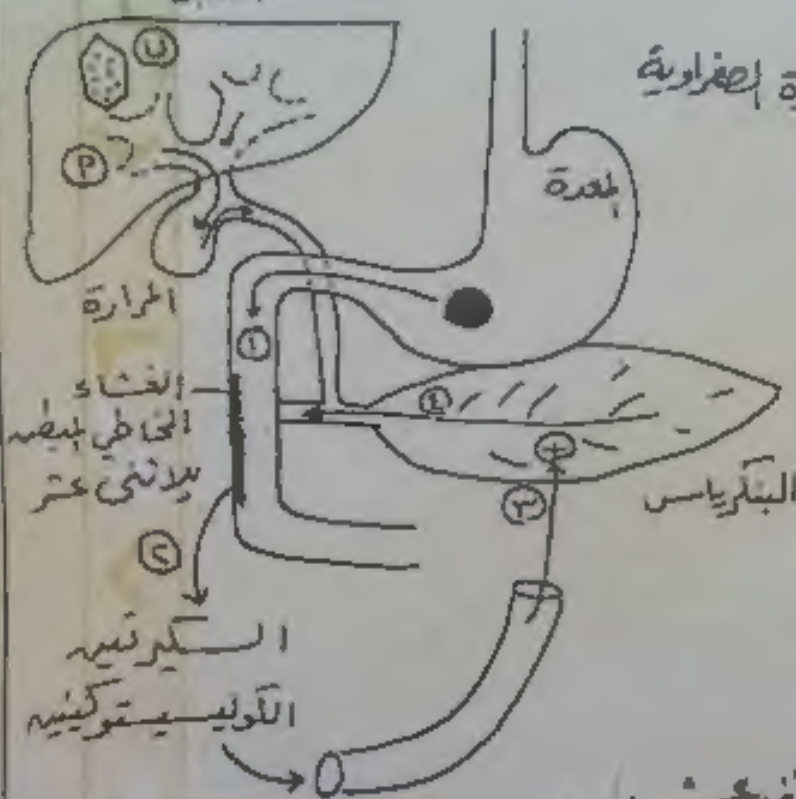 الصفراوية
ب
م
المعدة
المرارة
١
الغشاء
المخاطي المبطن
للاثني عشر
٤
البنكرياس
٣
٢
السكرتين
الكوليسيستوكينين